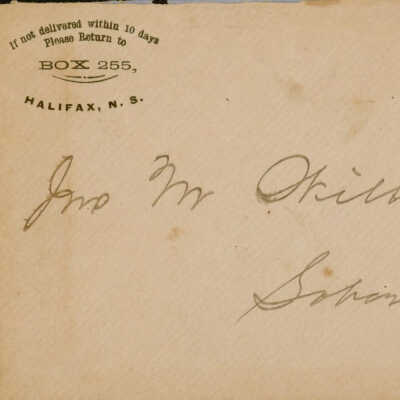 If not delivered within 10 days
Please Return to
BOX 255,
HALIFAX, N. S.
Jno W Will